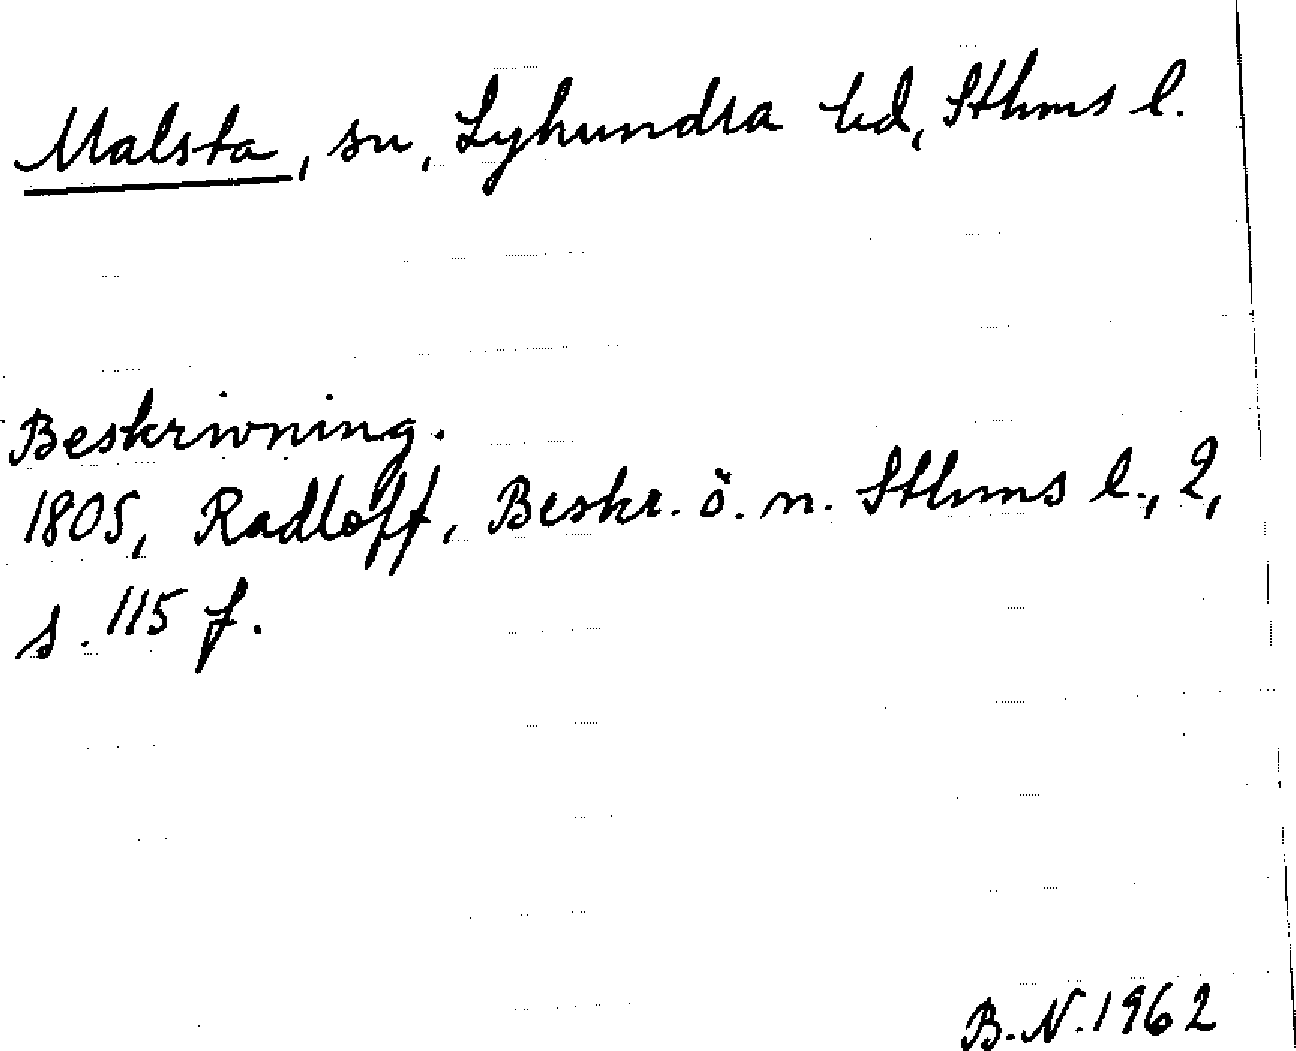 Malsta, sn, Lyhundra hd, Sthms l.
Beskrivning.
1805, Radloff, Beskr. ö. n. Sthms l., 2,
s. 115 f.
B.N. 1962